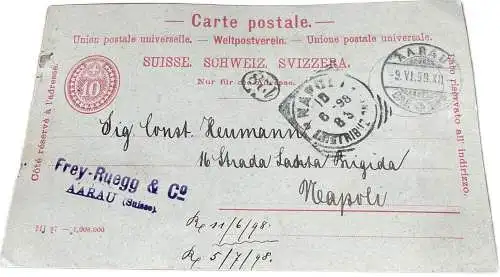 — Carte postale. —
Union postale universelle. — Weltpostverein. — Unione postale universale.
SUISSE. SCHWEIZ. SVIZZERA.
Nur für die Adresse.
Côté réservé à l'adresse.
Lato riservato all'indirizzo.
10
AARAU
NAPOLI
10
6-98
8 S
Sig. Const. Heumann
16 Strada Santa Brigida
Napoli
Frey-Ruegg & Co
AARAU (Suisse).
Rp 11/6/98.
Rp 5/7/98.